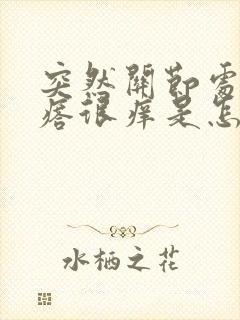 突然關節處
痞很痒是怎
水栖之花